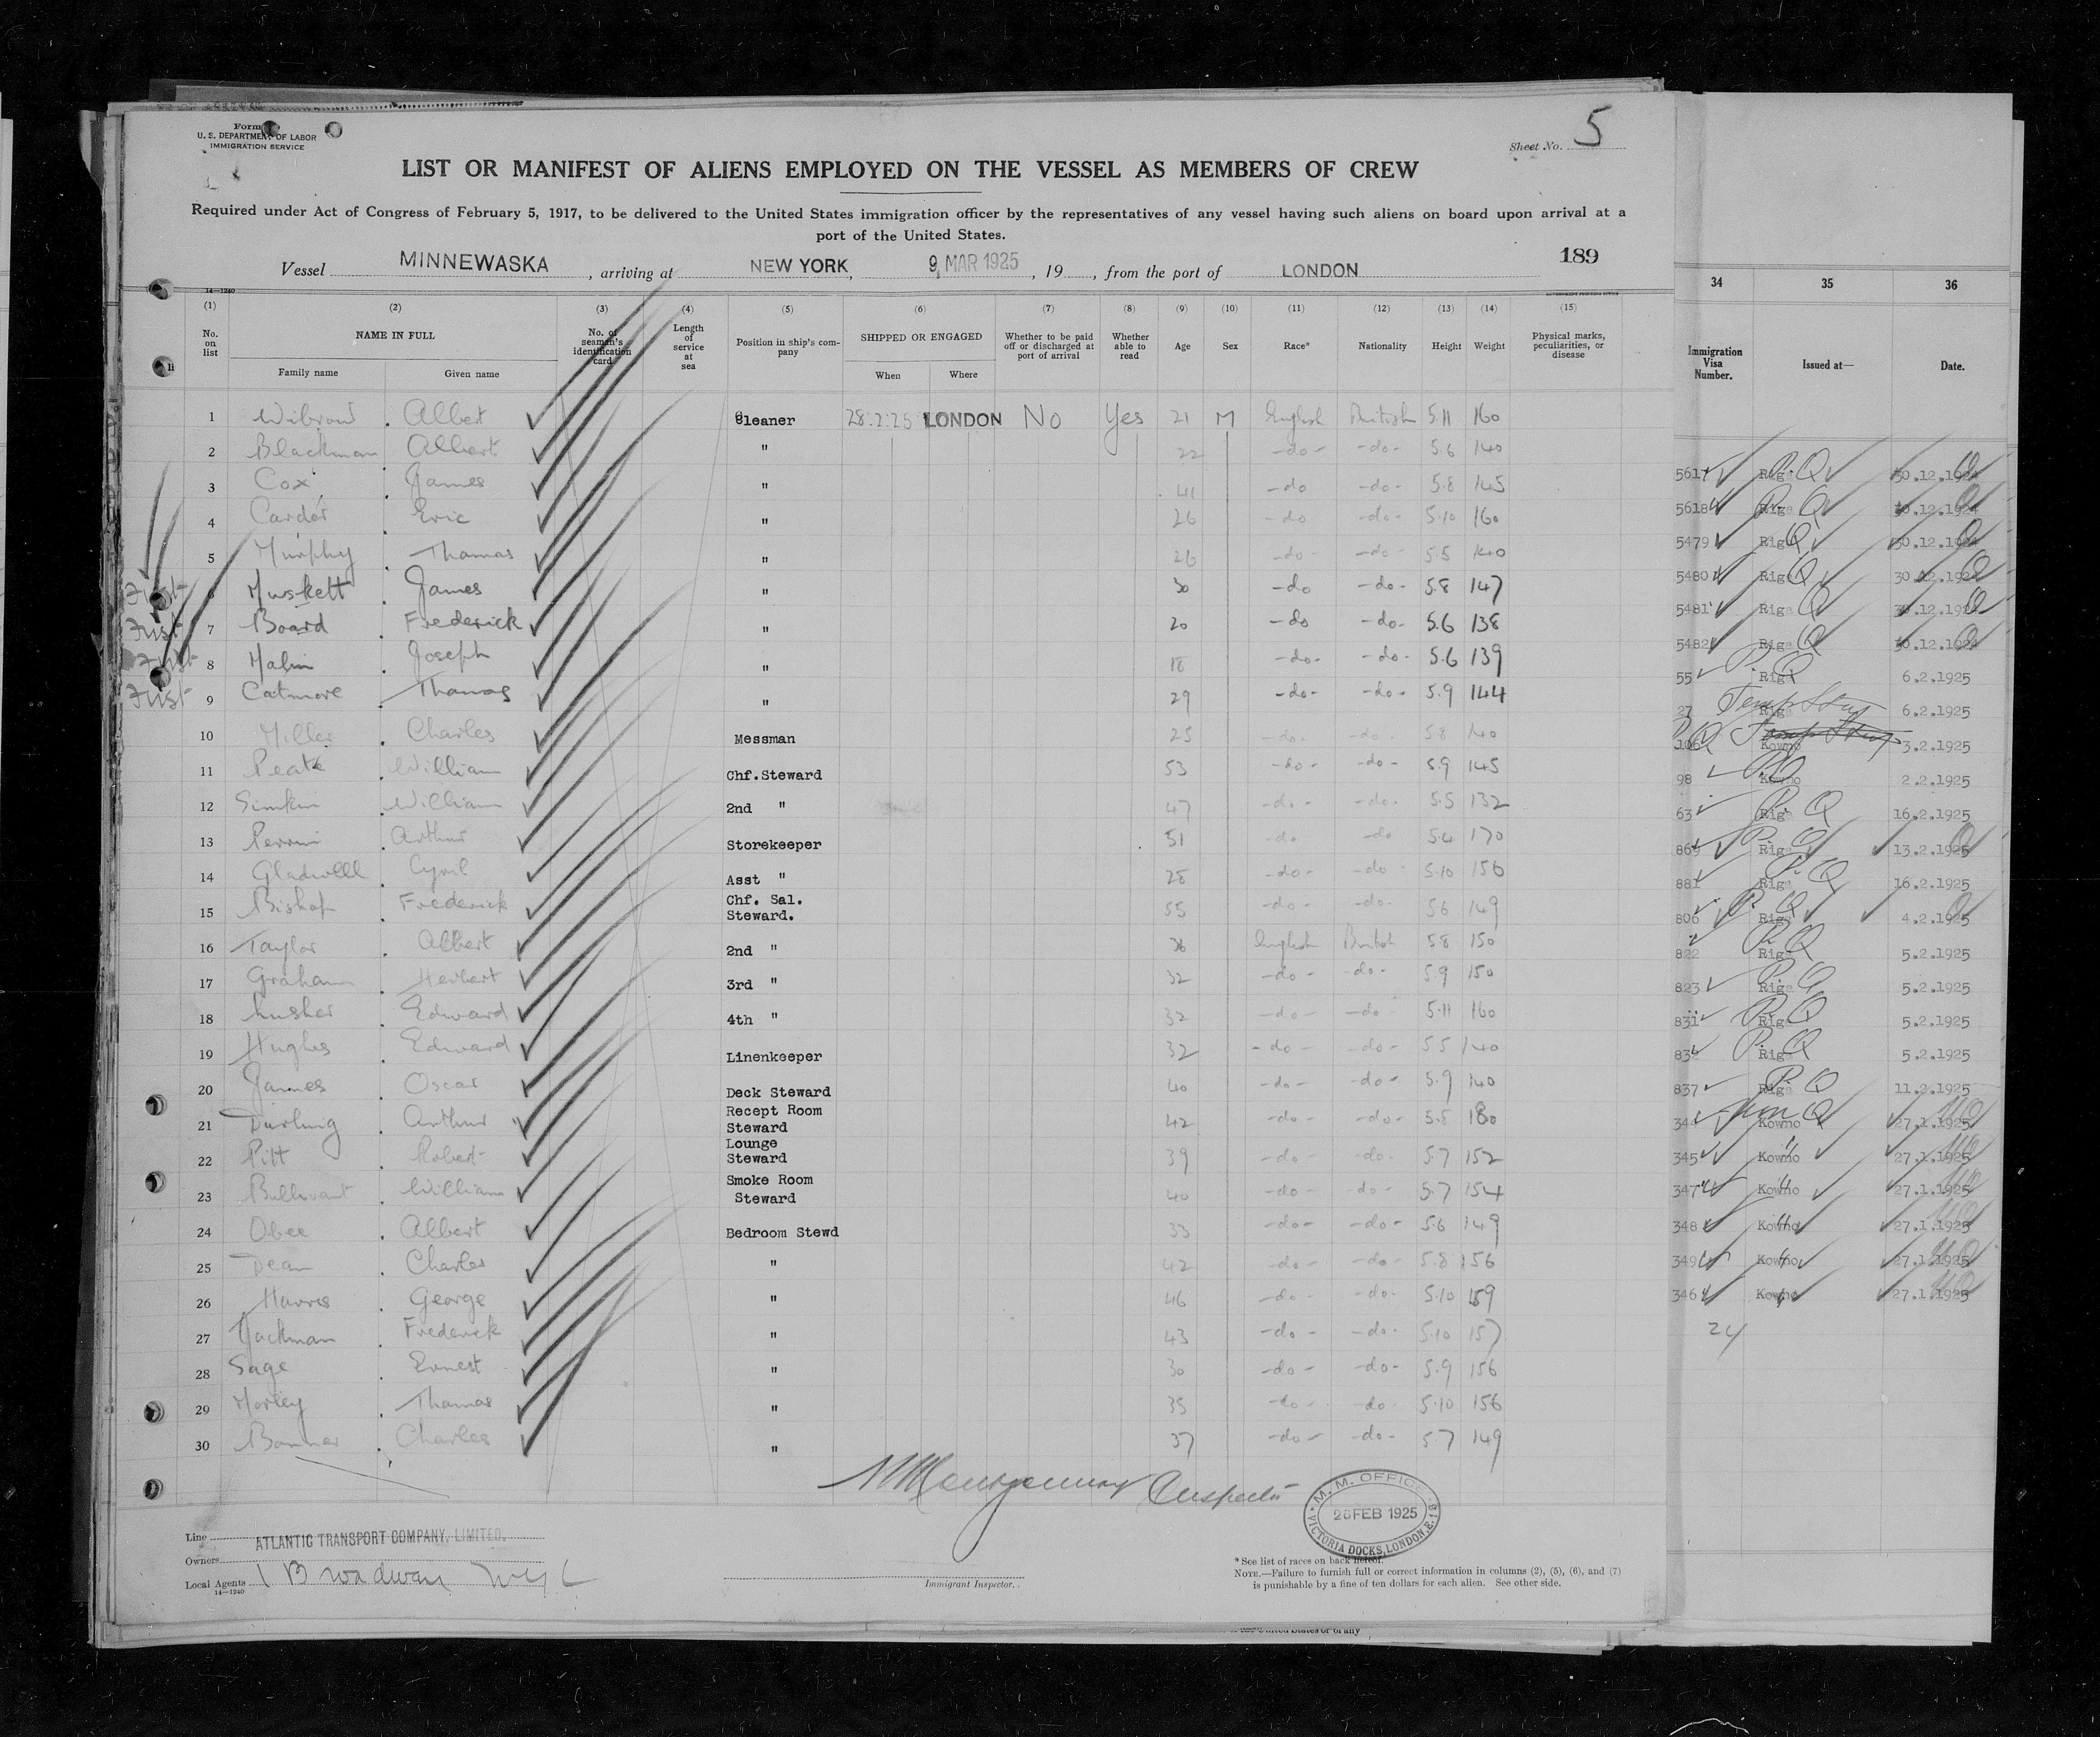 Form
U. S. DEPARTMENT OF LABOR
IMMIGRATION SERVICE
Sheet No. 5
LIST OR MANIFEST OF ALIENS EMPLOYED ON THE VESSEL AS MEMBERS OF CREW
Required under Act of Congress of February 5, 1917, to be delivered to the United States immigration officer by the representatives of any vessel having such aliens on board upon arrival at a
port of the United States.
Vessel MINNEWASKA, arriving at NEW YORK, 9 MAR 1925, 19, from the port of LONDON
189
14—1240
(1) (2) (3) (4) (5) (6) (7) (8) (9) (10) (11) (12) (13) (14) (15)
No. on list
NAME IN FULL
Family name Given name
No. of seaman's identification card
Length of service at sea
Position in ship's company
SHIPPED OR ENGAGED
When Where
Whether to be paid off or discharged at port of arrival
Whether able to read
Age Sex Race* Nationality Height Weight
Physical marks, peculiarities, or disease
34 35 36
Immigration Visa Number. Issued at— Date.
1 Albert Cleaner 28.2.25 LONDON No Yes 21 M English British 5.11 160
2 Blackman Albert " 22 -do- -do- 5.6 140
3 Cox James " 41 -do -do- 5.8 145
4 Carder Eric " 26 -do -do- 5.10 160
5 Murphy Thomas " 26 -do- -do- 5.5 140
First 6 Muskett James " 30 -do -do- 5.8 147
First 7 Board Frederick " 20 -do -do- 5.6 138
First 8 Malin Joseph " 18 -do- -do- 5.6 139
First 9 Catmore Thomas " 29 -do- -do- 5.9 144
10 Miller Charles Messman 25 -do- -do- 5.8 140
11 Peate William Chf.Steward 53 -do- -do- 5.9 145
12 Simkin William 2nd " 47 -do- -do- 5.5 132
13 Perrin Arthur Storekeeper 51 -do -do 5.4 170
14 Gladwell Cyril Asst " 28 -do- -do- 5.10 156
15 Bishop Frederick Chf. Sal. Steward. 55 -do- -do- 5.6 149
16 Taylor Albert 2nd " 36 English British 5.8 150
17 Graham Herbert 3rd " 32 -do- -do- 5.9 150
18 Lusher Edward 4th " 32 -do- -do- 5.11 160
19 Hughes Edward Linenkeeper 32 -do- -do- 5.5 140
20 James Oscar Deck Steward 40 -do- -do- 5.9 140
21 Darling Arthur Recept Room Steward 42 -do- -do- 5.8 180
22 Pitt Robert Lounge Steward 39 -do- -do- 5.7 152
23 Bullivant William Smoke Room Steward 40 -do- -do- 5.7 154
24 Obee Albert Bedroom Stewd 33 -do- -do- 5.6 149
25 Dean Charles " 42 -do- -do- 5.8 156
26 Harris George " 46 -do- -do- 5.10 159
27 Jackman Frederick " 43 -do- -do- 5.10 157
28 Sage Ernest " 30 -do- -do- 5.9 156
29 Morley Thomas " 35 -do- -do- 5.10 156
30 Charles " 37 -do- -do- 5.7 149
5617 Riga 30.12.1924
5618 Riga 30.12.1924
5479 Riga 30.12.1924
5480 Riga 30.12.1924
5481 Riga 30.12.1924
5482 Riga 30.12.1924
55 Riga 6.2.1925
27 Riga 6.2.1925
106 Kowno 3.2.1925
98 Kowno 2.2.1925
63 Riga 16.2.1925
869 Riga 13.2.1925
881 Riga 16.2.1925
806 Riga 4.2.1925
822 Riga 5.2.1925
823 Riga 5.2.1925
831 Riga 5.2.1925
Riga 5.2.1925
837 Riga 11.2.1925
344 Kowno 27.1.1925
345 Kowno 27.1.1925
347 Kowno 27.1.1925
348 Kowno 27.1.1925
349 Kowno 27.1.1925
346 Kowno 27.1.1925
24
Montgomery Inspector
M. M. OFFICE
28 FEB 1925
VICTORIA DOCKS, LONDON, E.16
Line ATLANTIC TRANSPORT COMPANY, LIMITED.
Owners
Local Agents
14—1240
Immigrant Inspector.
* See list of races on back hereof.
NOTE.—Failure to furnish full or correct information in columns (2), (5), (6), and (7)
is punishable by a fine of ten dollars for each alien. See other side.